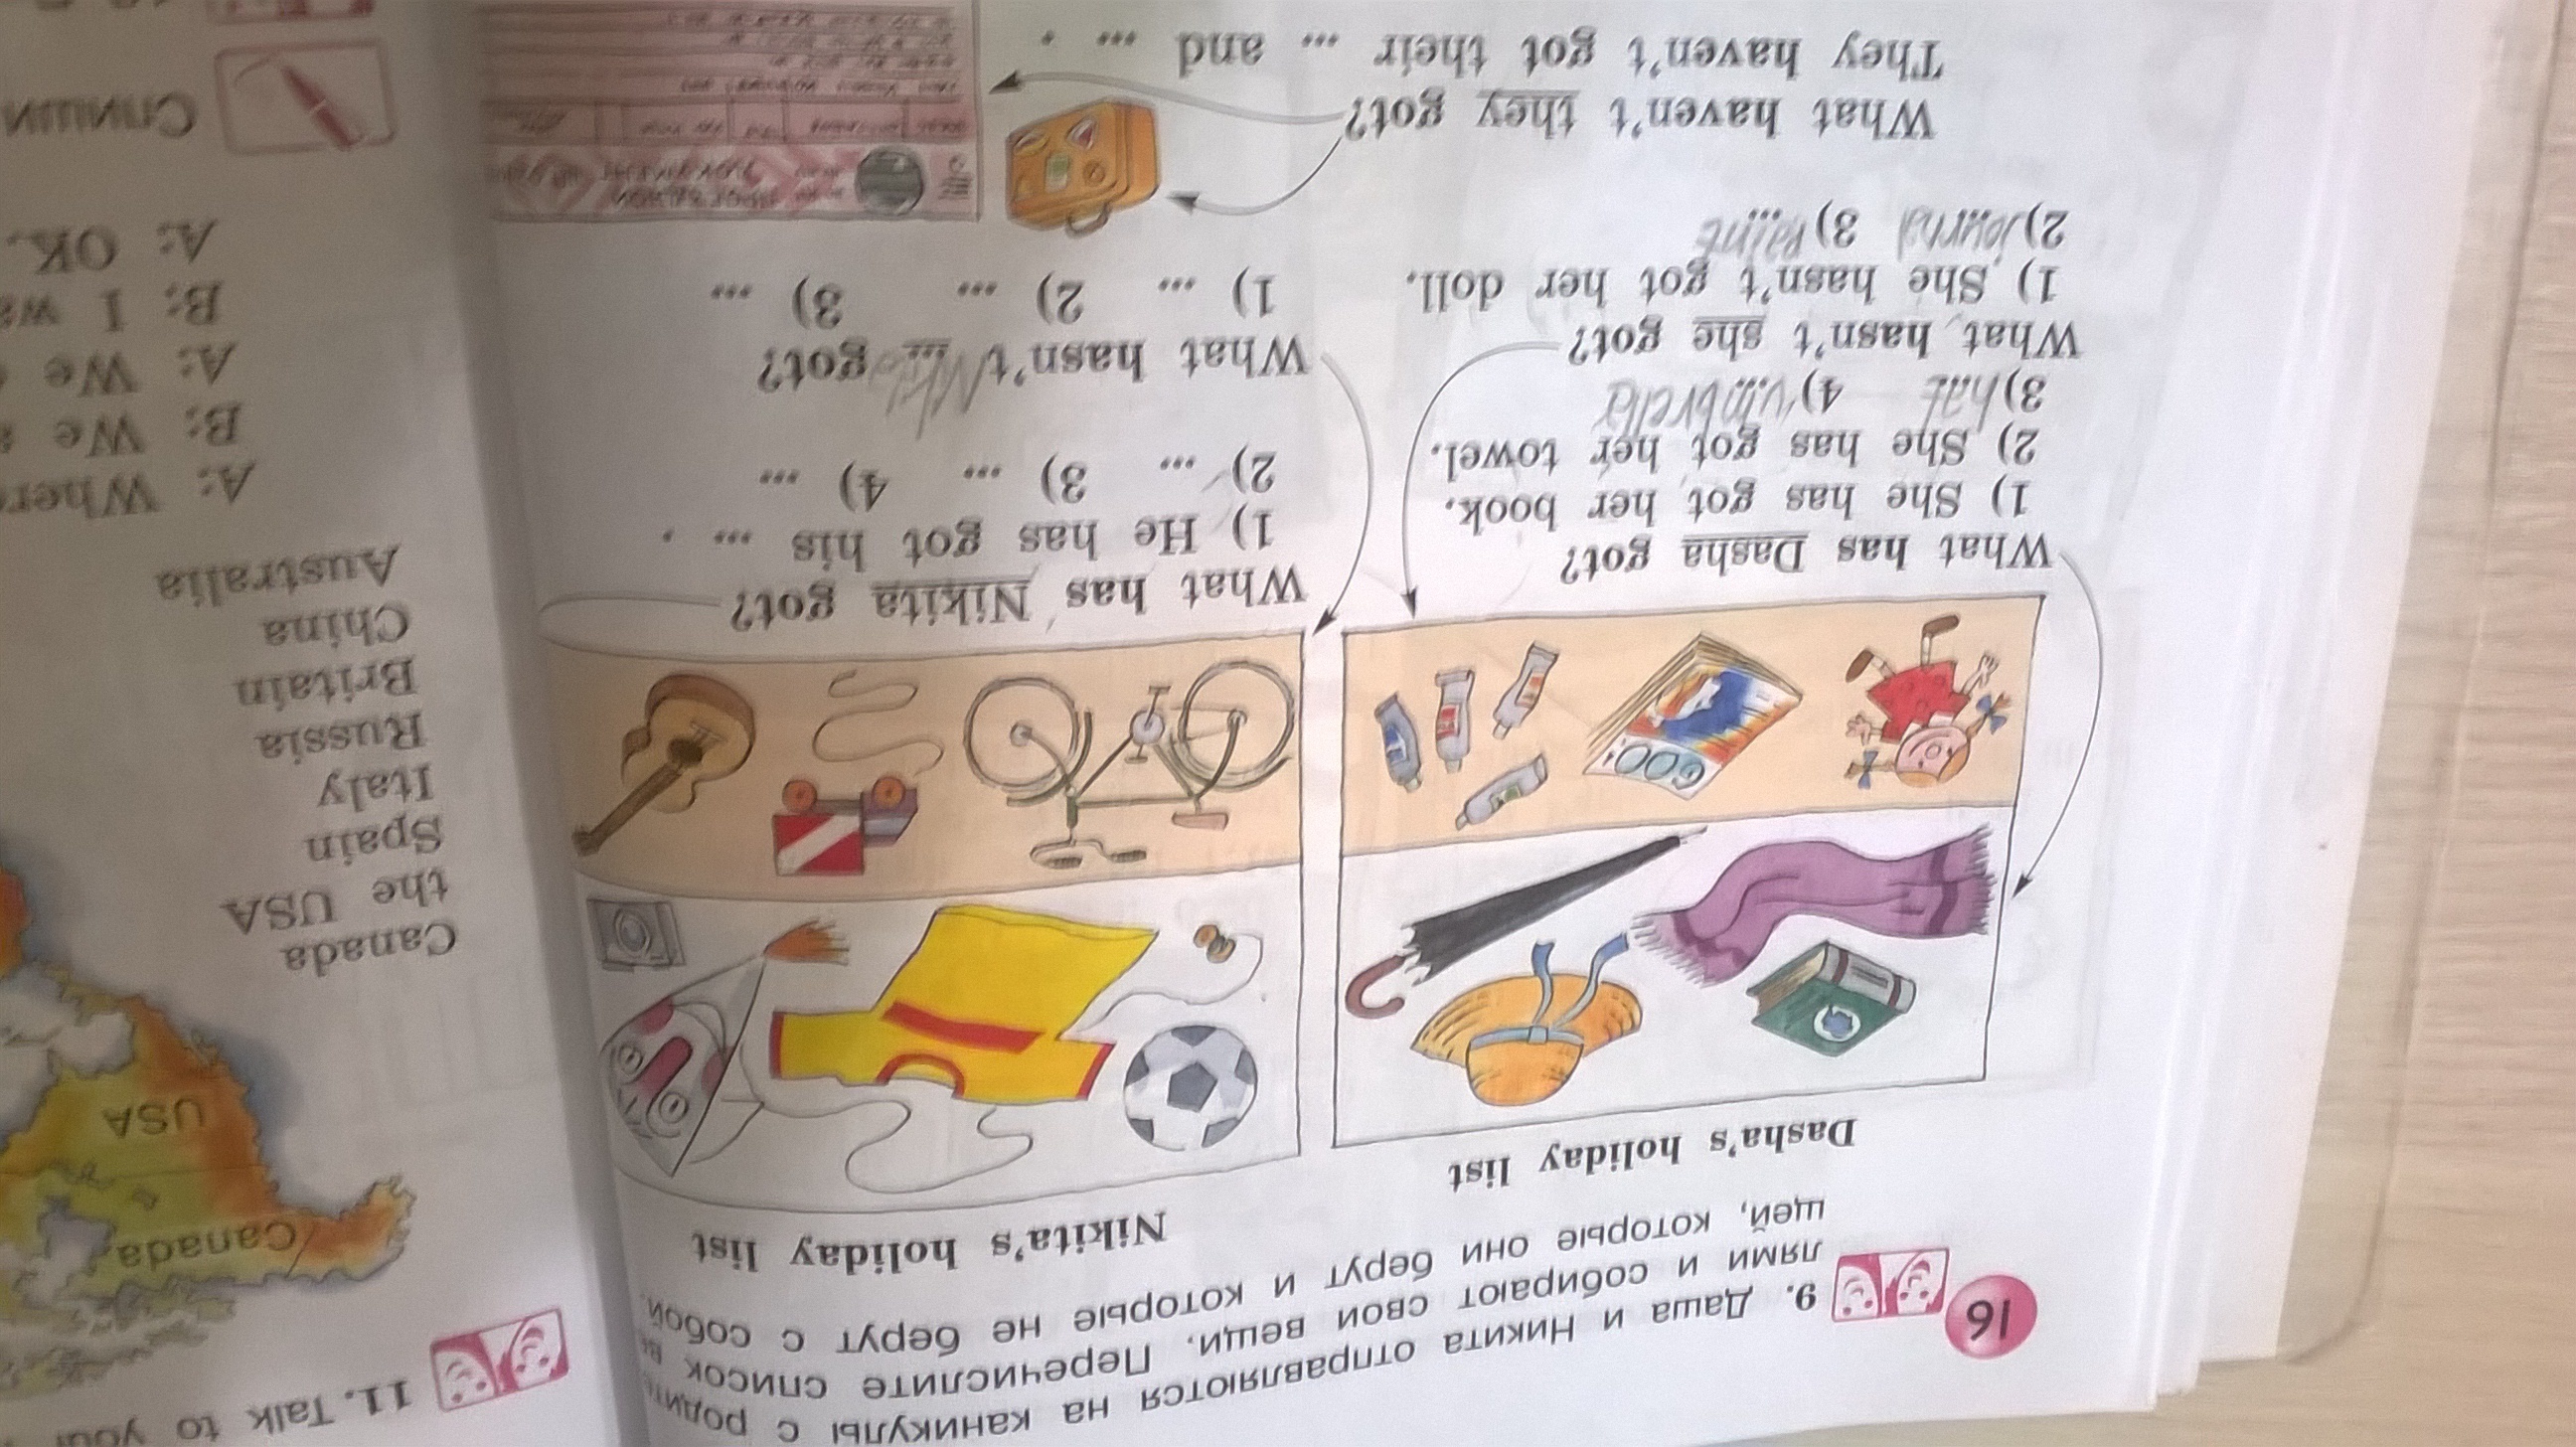 16
9. Даша и Никита отправляются на каникулы с
лями и собирают свои вещи. Перечислите список
щей, которые они берут и которые не берут с собой.
Dasha's holiday list
Nikita's holiday list
GOO
What has Dasha got?
1) She has got her book.
2) She has got her towel.
3) hat 4) umbrella
What hasn't she got?
1) She hasn't got her doll.
2) Journal 3) Paint
What has Nikita got?
1) He has got his ... .
2) ... 3) ... 4) ...
What hasn't ... got?
1) ... 2) ... 3) ...
What haven't they got?
They haven't got their ... and ... .
11. Talk to your
Canada
USA
Canada
the USA
Spain
Italy
Russia
Britain
China
Australia
A: Where
B: We
A: We
B: I
A: OK.
Спиши